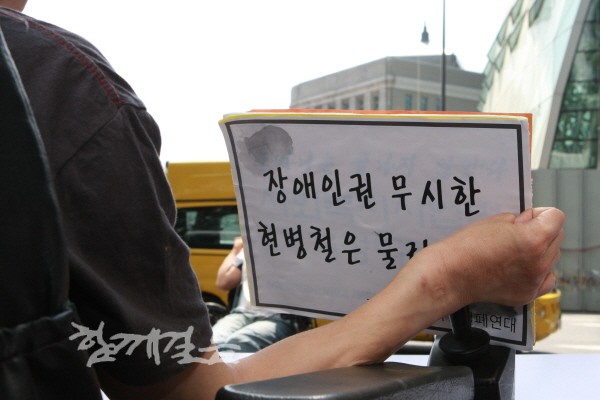 장애인권 무시한
현병철은
폐연대
함께걸음